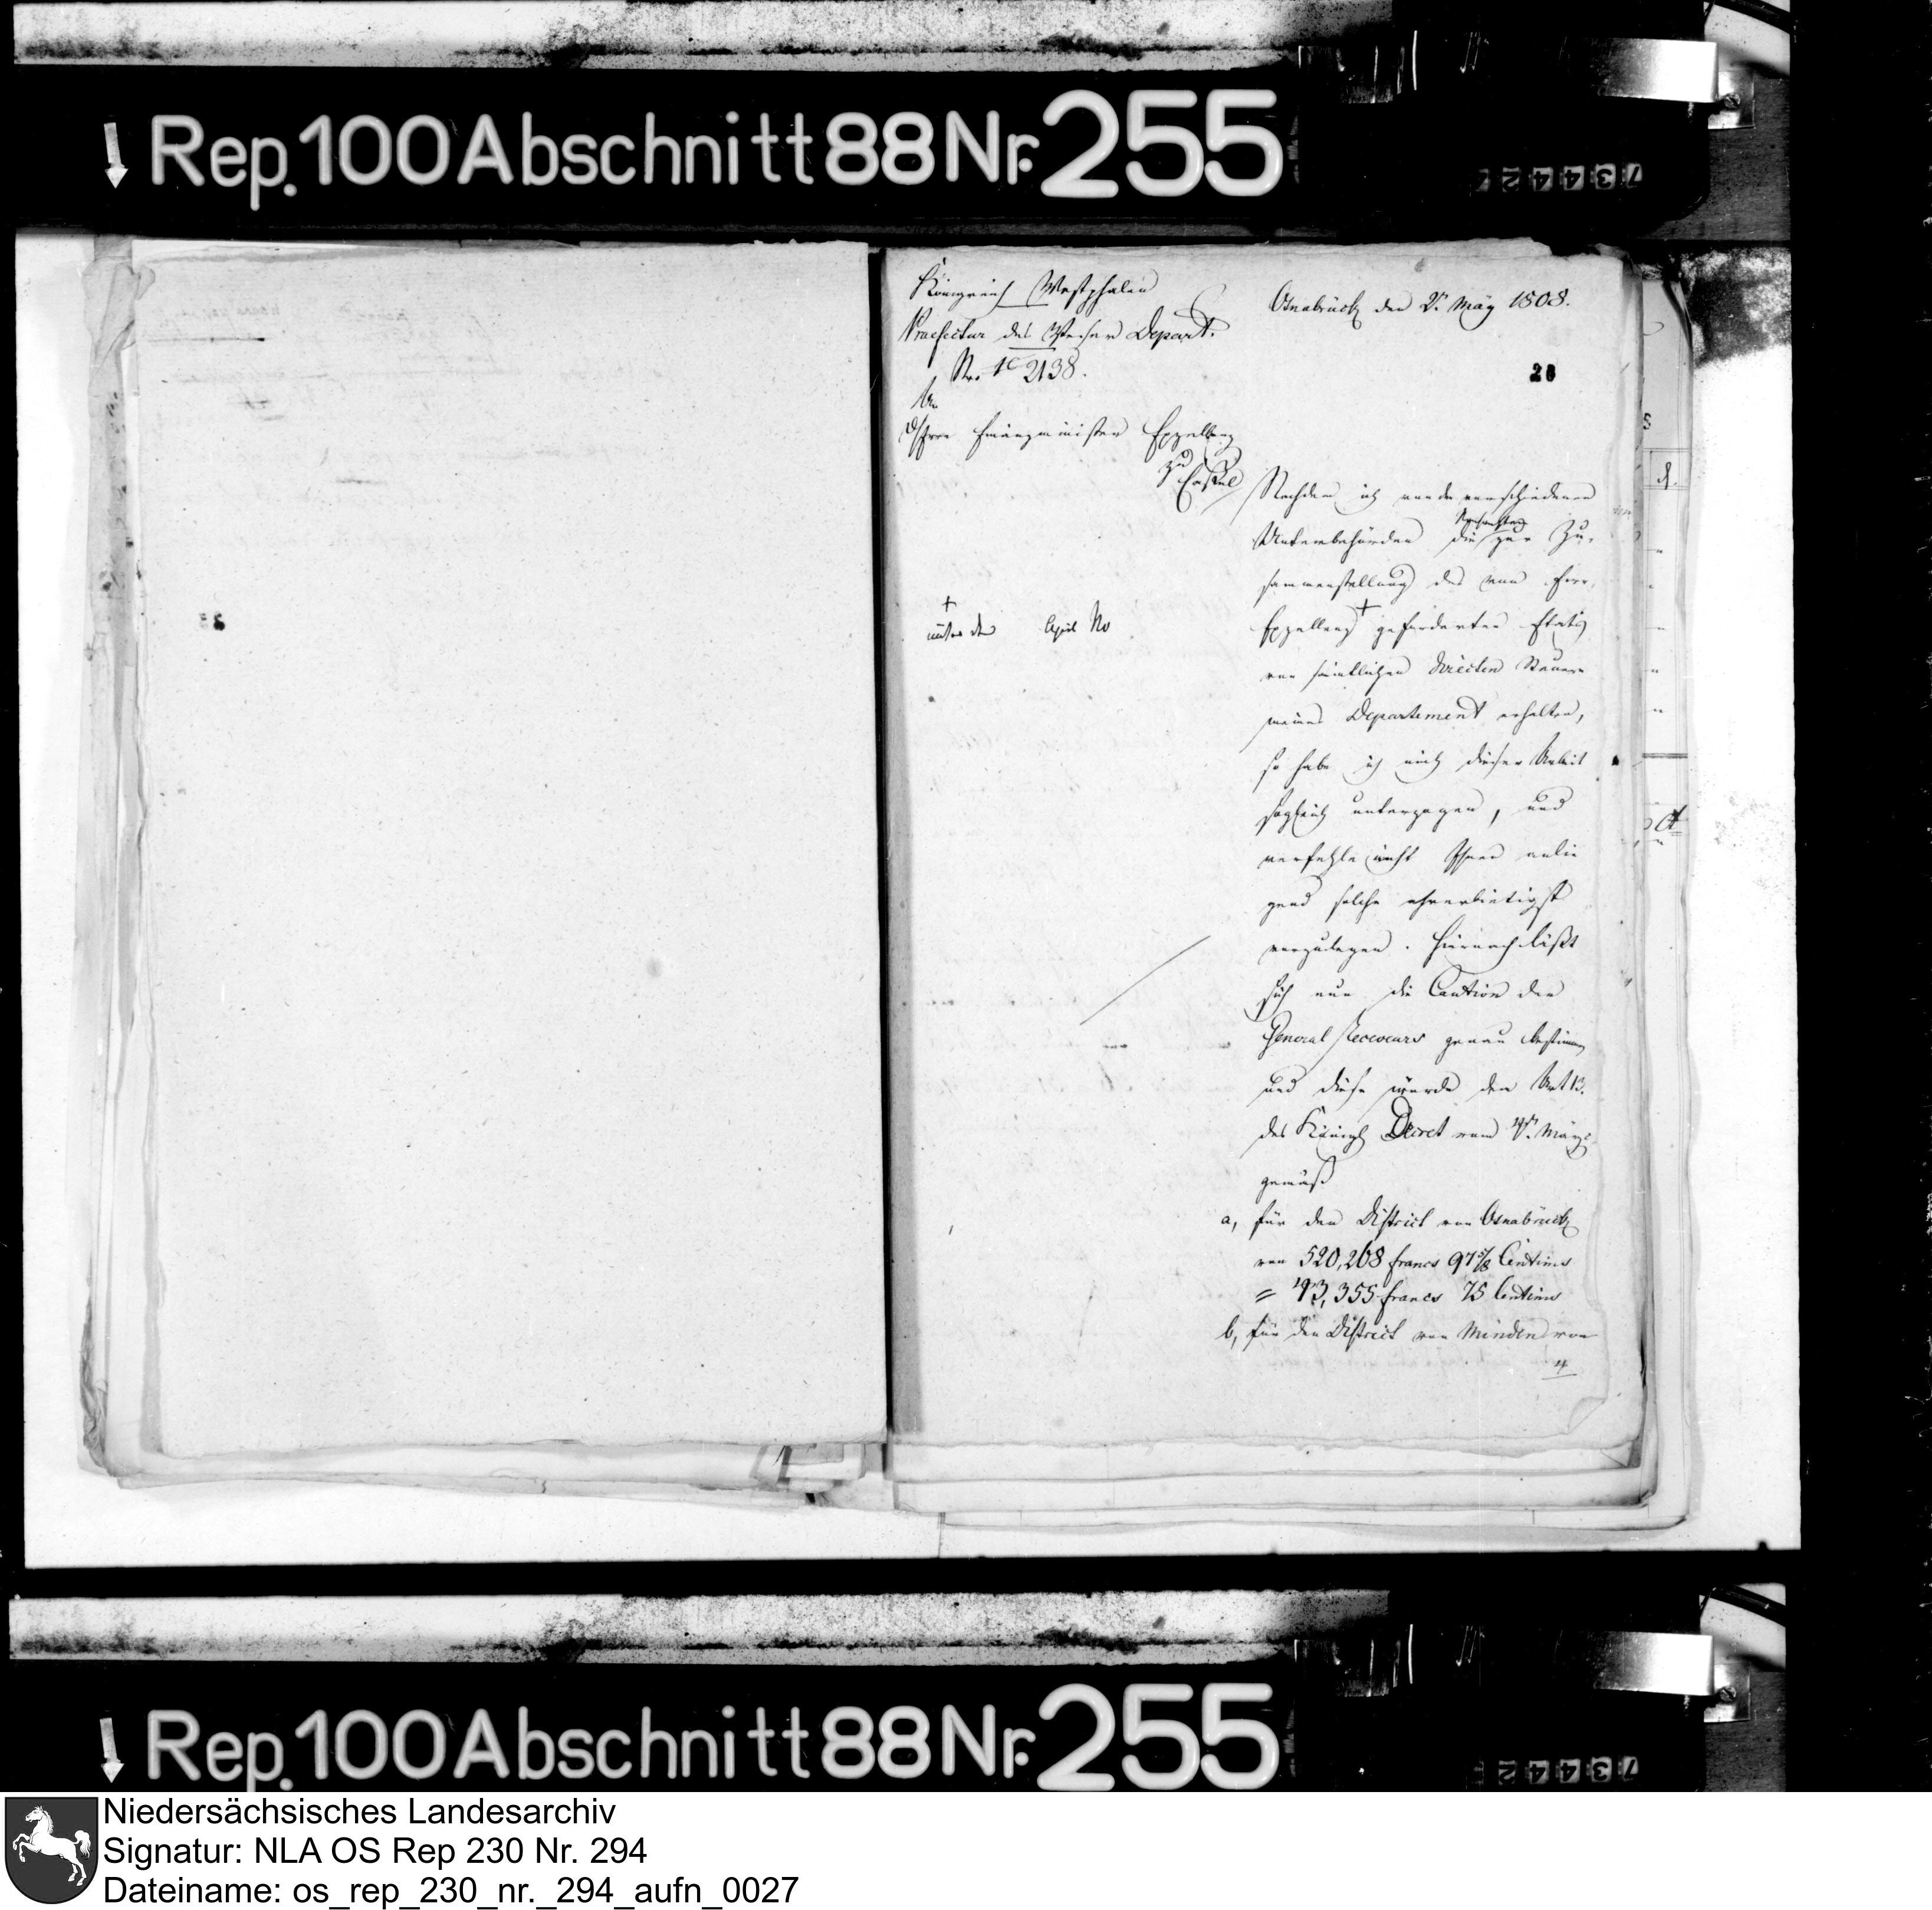 Rep. 100 Abschnitt 88 Nr. 255
734427
Königreich Westphalen
Praefectur des Weser Depart.
No. 1c 2138.
Osnabrück den 2t May 1808.
28
An
des Herrn Finanzministers Exzellenz
zu Cassel
Nachdem ich von den verschiedenen
Unterbehörden die zur Zu-
sammenstellung des von Euer
Exzellenz + geforderten Etats
von sämtlichen directen Steuern
meines Departement erhalten,
+
unter dem April No
so habe ich mich dieser Arbeit
sogleich unterzogen, und
verfehle nicht Ihnen anlie
gend solche ehrerbietigst
vorzulegen. Hiernach läßt
sich nun die Caution der
General Receveurs genau bestimmen
und diese würde dem Art 13.
des Königl Decret vom März
gemäß
a, für den District von Osnabrück
von 520,268 francs 97 5/8 Centimes
= 43,355 francs 75 Centimes
b, für den District von Minden von
Rep. 100 Abschnitt 88 Nr. 255
734427
Niedersächsisches Landesarchiv
Signatur: NLA OS Rep 230 Nr. 294
Dateiname: os_rep_230_nr._294_aufn_0027